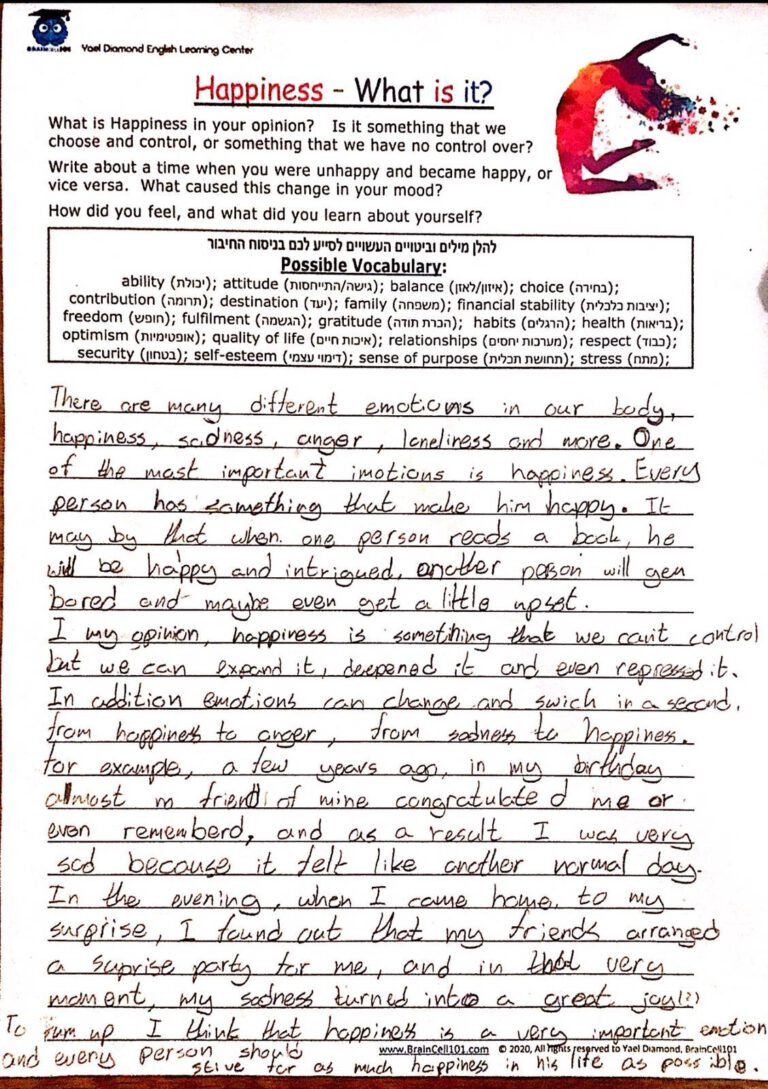 BRAINCELL101
Yael Diamond English Learning Center
Happiness - What is it?
What is Happiness in your opinion? Is it something that we
choose and control, or something that we have no control over?
Write about a time when you were unhappy and became happy, or
vice versa. What caused this change in your mood?
How did you feel, and what did you learn about yourself?
להלן מילים וביטויים העשויים לסייע לכם בניסוח החיבור
Possible Vocabulary:
ability (יכולת); attitude (גישה/התייחסות); balance (איזון/לאזן); choice (בחירה);
contribution (תרומה); destination (יעד); family (משפחה); financial stability (יציבות כלכלית);
freedom (חופש); fulfilment (הגשמה); gratitude (הכרת תודה); habits (הרגלים); health (בריאות);
optimism (אופטימיות); quality of life (איכות חיים); relationships (מערכות יחסים); respect (כבוד);
security (בטחון); self-esteem (דימוי עצמי); sense of purpose (תחושת תכלית); stress (מתח);
There are many different emotions in our body,
happiness, sadness, anger, loneliness and more. One
of the most important imotions is happiness. Every
person has something that make him happy. It
may by that when one person reads a book, he
will be happy and intrigued, another person will
bored and maybe even get a little upset.
I my opinion, happiness is something that we can't control
but we can expand it, deepened it and even repressed it.
In addition emotions can change and swich in a second,
from happiness to anger, from sadness to happiness.
for example, a few years ago, in my birthday
almost friend of mine congratulated me or
even rememberd, and as a result I was very
sad because it felt like another normal day.
In the evening, when I came home, to my
surprise, I found out that my friends arranged
a suprise party for me, and in that very
moment, my sadness turned into a great joy(!)
To sum up I think that happiness is a very important emotion
and every person should
stive for as much happiness in his life as possible.
www.BrainCell101.com © 2020, All rights reserved to Yael Diamond, BrainCell101